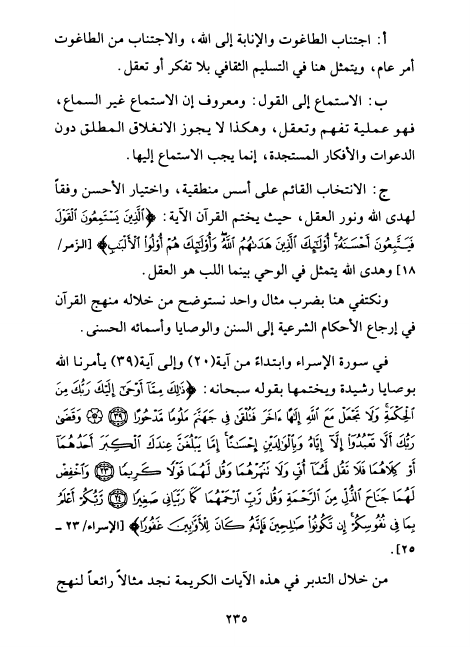 أ: اجتناب الطاغوت والإنابة إلى الله، والاجتناب من الطاغوت
أمر عام، ويتمثل هنا في التسليم الثقافي بلا تفكر أو تعقل.
ب: الاستماع إلى القول: ومعروف إن الاستماع غير السماع،
فهو عملية تفهم وتعقل، وهكذا لا يجوز الانغلاق المطلق دون
الدعوات والأفكار المستجدة، إنما يجب الاستماع إليها.
ج: الانتخاب القائم على أسس منطقية، واختيار الأحسن وفقاً
لهدى الله ونور العقل، حيث يختم القرآن الآية: ﴿الَّذِينَ يَسْتَمِعُونَ الْقَوْلَ
فَيَتَّبِعُونَ أَحْسَنَهُ أُوْلَئِكَ الَّذِينَ هَدَاهُمُ اللَّهُ وَأُوْلَئِكَ هُمْ أُوْلُوا الْأَلْبَبِ﴾ [الزمر/
١٨] وهدى الله يتمثل في الوحي بينما اللب هو العقل.
ونكتفي هنا بضرب مثال واحد نستوضح من خلاله منهج القرآن
في إرجاع الأحكام الشرعية إلى السنن والوصايا وأسمائه الحسنى.
في سورة الإسراء وابتداءً من آية (٢٠) وإلى آية (٣٩) يأمرنا الله
بوصايا رشيدة ويختمها بقوله سبحانه: ﴿ذَلِكَ مِمَّا أَوْحَى إِلَيْكَ رَبُّكَ مِنَ
الْحِكْمَةِ وَلَا تَجْعَلْ مَعَ اللَّهِ إِلَهًا ءَاخَرَ فَتُلْقَى فِي جَهَنَّمَ مَلُومًا مَدْحُورًا ﴿٣٩﴾ وَقَضَى
رَبُّكَ أَلَّا تَعْبُدُوا إِلَّا إِيَّاهُ وَبِالْوَالِدَيْنِ إِحْسَنًا إِمَّا يَبْلُغَنَّ عِندَكَ الْكِبَرَ أَحَدُهُمَا
أَوْ كِلَاهُمَا فَلَا تَقُل لَّهُمَا أُفٍّ وَلَا تَنْهَرْهُمَا وَقُل لَّهُمَا قَوْلًا كَرِيمًا ﴿٢٣﴾ وَاخْفِضْ
لَهُمَا جَنَاحَ الذُّلِّ مِنَ الرَّحْمَةِ وَقُل رَّبِّ ارْحَمْهُمَا كَمَا رَبَّيَانِي صَغِيرًا ﴿٢٤﴾ رَّبُّكُمْ أَعْلَمُ
بِمَا فِي نُفُوسِكُمْ إِن تَكُونُوا صَالِحِينَ فَإِنَّهُ كَانَ لِلْأَوَّابِينَ غَفُورًا﴾ [الإسراء/ ٢٣ ــ
٢٥].
من خلال التدبر في هذه الآيات الكريمة نجد مثالاً رائعاً لنهج
٢٣٥